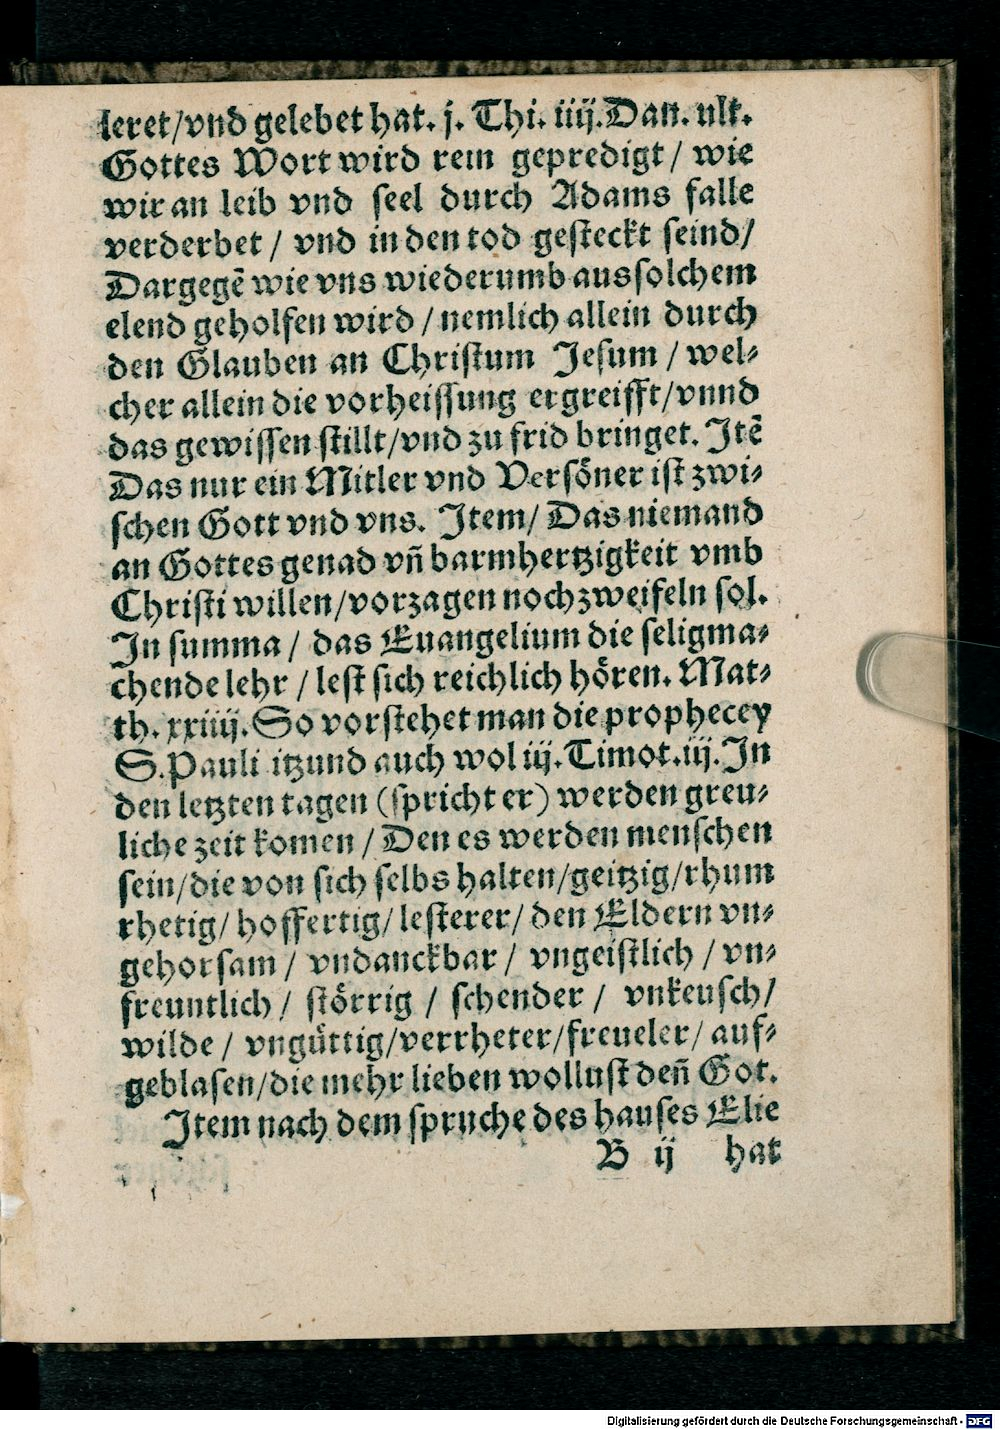 leret/vnd gelebet hat. j. Thi. iiij. Dan. vlt.
Gottes Wort wird rein gepredigt / wie
wir an leib vnd seel durch Adams falle
verderbet / vnd in den tod gesteckt seind/
Dargegẽ wie vns wiederumb aus solchem
elend geholfen wird / nemlich allein durch
den Glauben an Christum Jesum / wel-
cher allein die vorheissung ergreifft/vnnd
das gewissen stillt/vnd zu frid bringet. Jtẽ
Das nur ein Mitler vnd Versöner ist zwi-
schen Gott vnd vns. Jtem/ Das niemand
an Gottes genad vñ barmhertzigkeit vmb
Christi willen/vorzagen noch zweifeln sol.
Jn summa / das Euangelium die seligma-
chende lehr / lest sich reichlich hören. Mat-
th. xxiiij. So vorstehet man die prophecey
S. Pauli itzund auch wol iij. Timot. iij. Jn
den letzten tagen (spricht er) werden greu-
liche zeit komen / Den es werden menschen
sein/die von sich selbs halten/geitzig/rhum
rhetig/ hoffertig/ lesterer/ den Eldern vn-
gehorsam / vndanckbar / vngeistlich / vn-
freuntlich / störrig / schender / vnkeusch/
wilde / vngüttig/verrheter/freueler/ auf-
geblasen/die mehr lieben wollust deñ Got.
Jtem nach dem spruche des hauses Elie
B ij hat
Digitalisierung gefördert durch die Deutsche Forschungsgemeinschaft - DFG